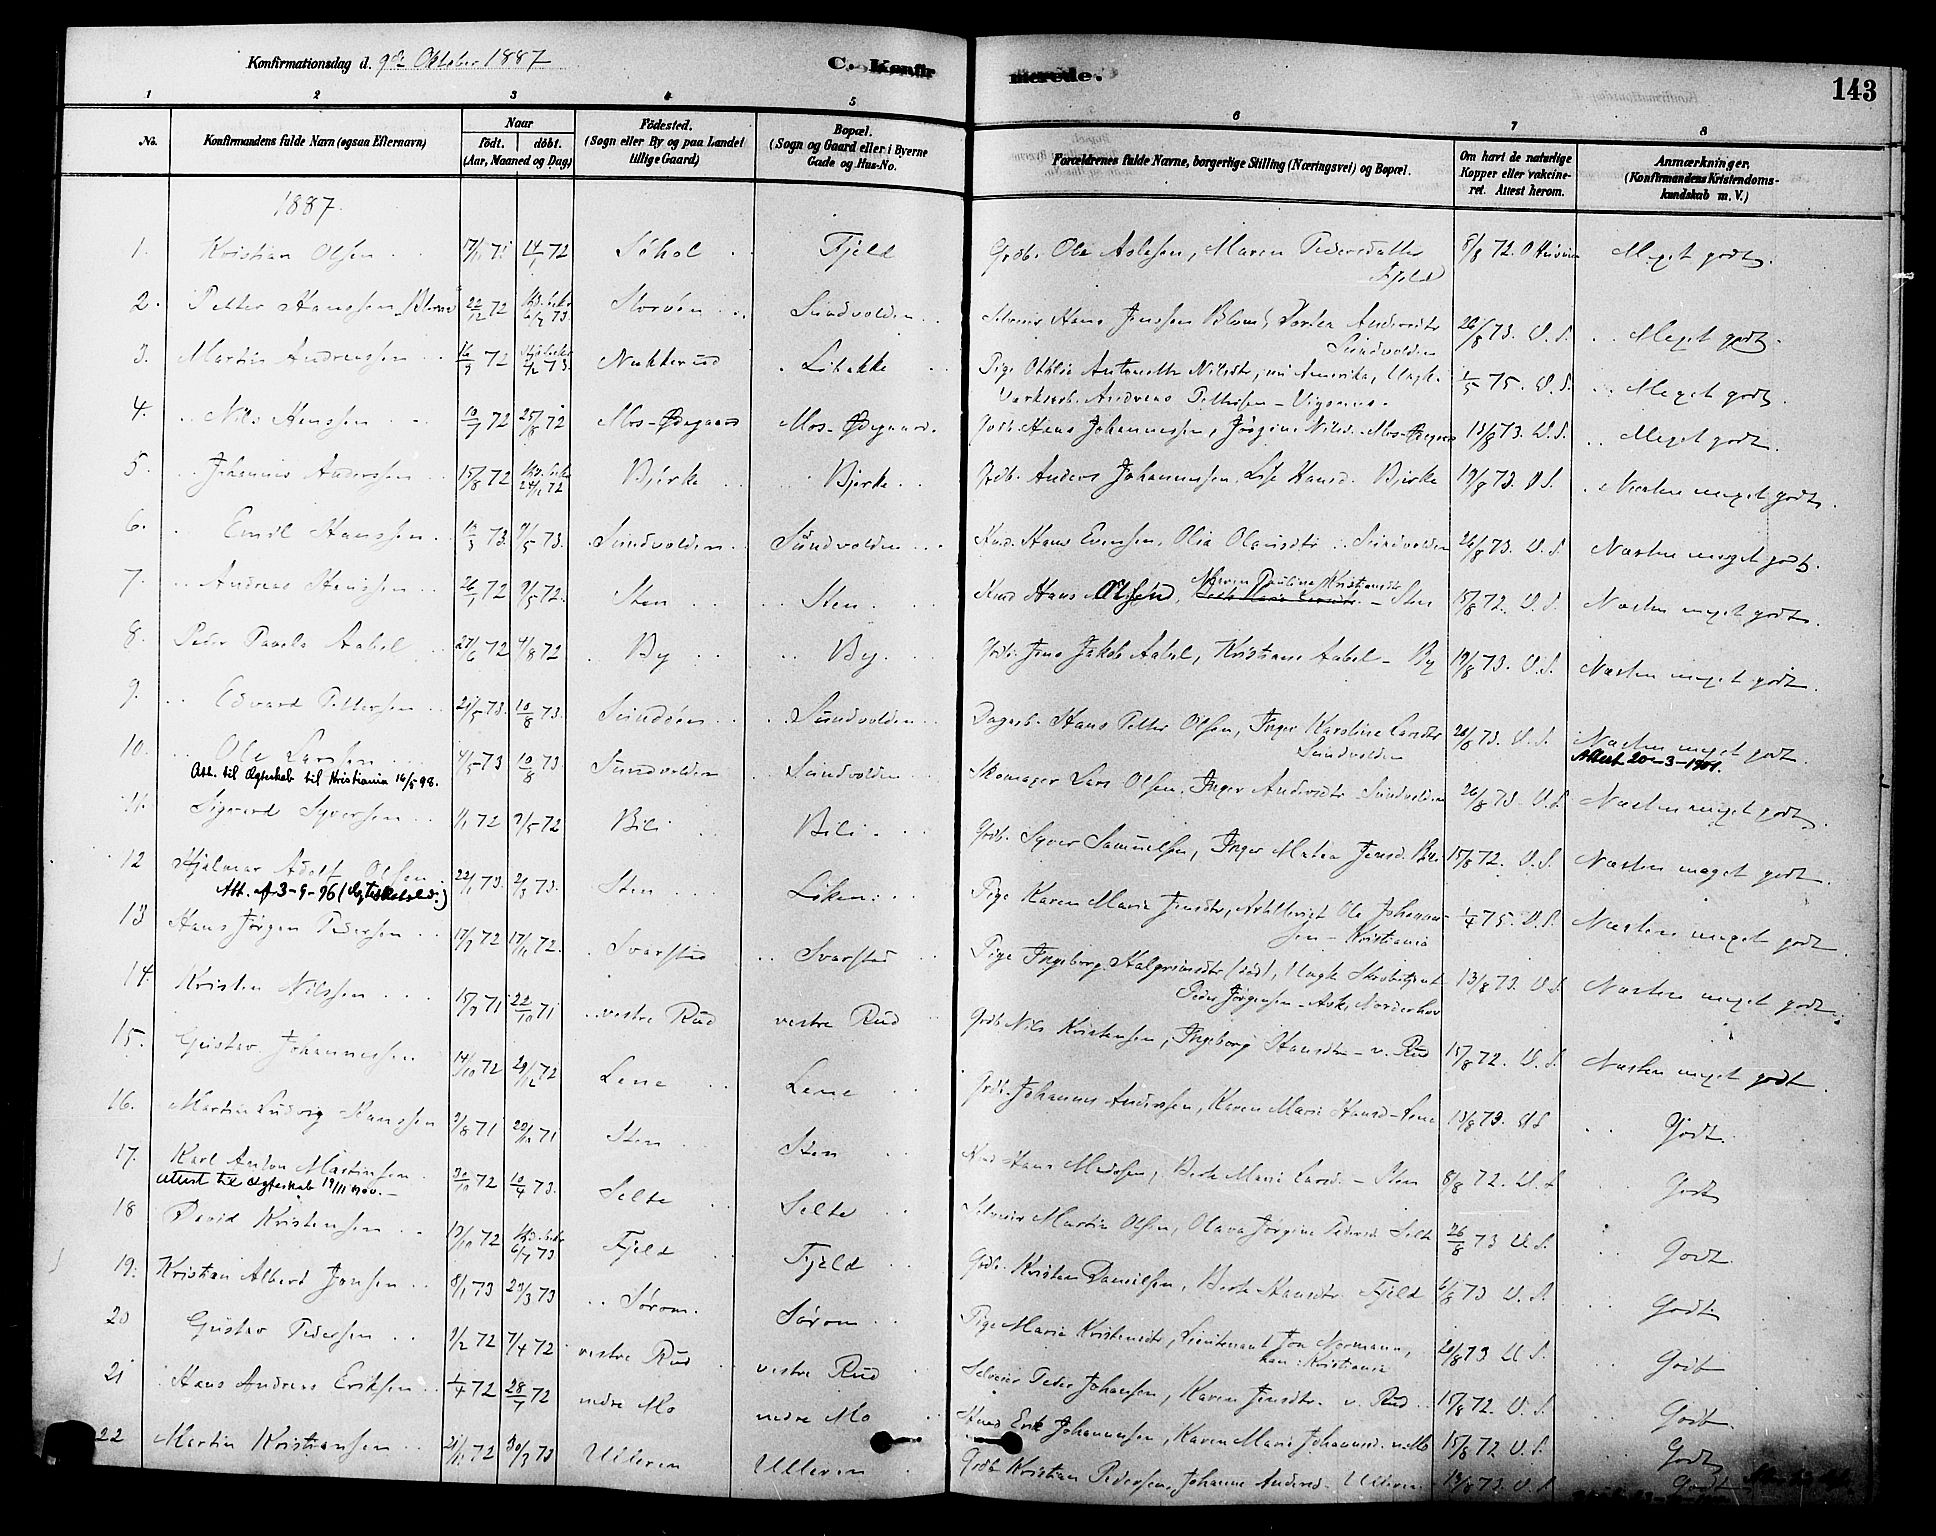 Konfirmationsdag d. 9de Oktober 1887
C. Konfirmerede.
143
1 2 3 4 5 6 7 8
No. Konfirmandens fulde Navn (ogsaa Efternavn)
Naar født. døbt. (Aar, Maaned og Dag)
Fødested. (Sogn eller By og paa Landet tillige Gaard)
Bopæl. (Sogn og Gaard eller i Byerne Gade og Hus-No.
Forældrenes fulde Navne, borgerlige Stilling (Næringsvei) og Bopæl.
Om havt de naturlige Kopper eller vakcineret. Attest herom.
Anmærkninger. (Konfirmandens Kristendomskundskab m. V.)
1887.
1. Kristian Olsen 14/1 72 Fjeld Grdb. Ole Aslesen, Maren Pedersdatter Fjeld 8/8 72. Meget godt.
2. Petter Hanssen Blom 22/12 72 6/7 73. Storøen Sundvolden Selveier Hans Jenssen Blom, Dortea Andersdtr Sundvolden 26/8 73. V. S. Meget godt.
3. Martin Andreassen 16/9 72 Nukkerud Libakke Pige Othlie Antonette Nilsdtr, nu Amerika, Ungk. Andreas Petterssen 1/5 75. V. S. Meget godt.
4. Nils Hanssen 10/7 72 25/8 72 Mos-Ødegaard Mos-Ødegaard. Grdb. Hans Johannessen, Jørgine Nilsd. Mos-Ødegrd 13/8 73. V. S. Meget godt.
5. Johannes Anderssen 15/8 72 24/11 72 Bjørke Bjerke Grdb. Anders Johannessen, Lise Hansd. Bjerke 19/8 73. V. S. Næsten meget godt.
6. Emil Hanssen 10/3 73. 9/5 73. Sundvolden Sundvolden Hmd. Hans Evensen, Olia Olausdtr. Sundvolden 26/8 73. V. S. Næsten meget godt.
7. Andreas Hanssen 26/1 72 9/5 72. Sten Sten. Hmd Hans Olsen, Maren Paulina Kristiansdtr - Sten 15/8 72. V. S. Næsten meget godt.
8. Peter Pavels Aabel 27/6 72 4/8 72 By By. Grdb. Jens Jakob Aabel, Kristiane Aabel - By 19/8 73. V. S. Næsten meget godt.
9. Edvard Pettersen 21/5 73. 10/8 73. Sundøen Sundvolden Dagarb. Hans Petter Olsen, Inger Karoline Larsdtr Sundvolden 26/8 73. V. S. Næsten meget godt.
Attest 20-3-1901.
10. Ole Larssen 4/5 73 10/8 73. Sundvolden Sundvolden Skomager Lars Olsen, Inger Andersdtr Sundvolden 26/8 73. V. S. Næsten meget godt.
Att. til Ægteskab til Kristiania 16/5 98.
11. Sigvard Syversen 1/1 72 9/5 72 Bili Bili. Grdb. Syver Samuelsen, Inger Matea Jensd. Bili 15/8 72. V. S. Næsten meget godt.
12 Hjalmar Adolf Olsen 22/1 73. 2/3 73. Sten Løken Pige Karen Marie Jensdtr, Ole Johannessen - Kristiania 1/4 75. V. S. Næsten meget godt
Att. af 3-9-96 (Ægteskab)
13 Hans Jørgen Pedersen 17/7 72 17/11 72. Svarstad Svarstad Pige Ingeborg Halgrimsdtr (død), Ungk. Peder Jørgensen - Ask, Norderhov 13/8 73. V. S. Næsten meget godt.
14. Kristen Nilssen 15/9 71 22/10 71 vestre Rud vestre Rud Grdb. Nils Kristensen, Ingeborg Hansdtr - v. Rud 15/8 72. V. S. Næsten meget godt.
15. Gustav Johannessen 14/10 72 29/12 72 Lene Lene Grdb. Johannes Anderssen, Karen Marie Hansd - Lene 13/8 73. V. S. Godt.
16. Martin Ludvig Hanssen 2/8 71 71 Sten Sten Hmd Hans Madssen, Berte Marie Larsd. - Sten 8/8 72. V. S. Godt
17. Karl Anton Martinsen 30/10 72 10/4 73. Selte Selte Selveier Martin Olsen, Olava Jørgine Pedersd Selte 26/8 73 V. S. Godt.
attest til Ægteskab 19/11 1900.
18 David Kristensen 13/10 72 6/7 73 Fjeld Fjeld Grdb. Kristen Danielsen, Berte Hansdtr. Fjeld 6/8 73 V. S. Godt.
19. Kristian Albert Jonsen 8/1 73 23/3 73 Sørom. Sørom Pige Maria Kristensdtr, Lieutenant Jon Normann, han: Kristiania 26/8 73 V. S. Godt
20 Gustav Pedersen 9/2 72 7/4 72 vestre Rud vestre Rud Selveier Peder Johansen, Karen Jensdtr. v. Rud 15/8 72. V. S. Godt.
21 Hans Andreas Eriksen 1/4 72 28/7 72 nedre Mo nedre Mo Hmd Erik Johannessen, Karen Marie Johannesd. n. Mo 15/8 72 V. S. Godt
22 Martin Kristiansen 21/11 72 30/3 73 Ulleren Ulleren Grdb. Kristian Pedersen, Johanne Andersd. Ulleren 13/8 73. V. S. Godt